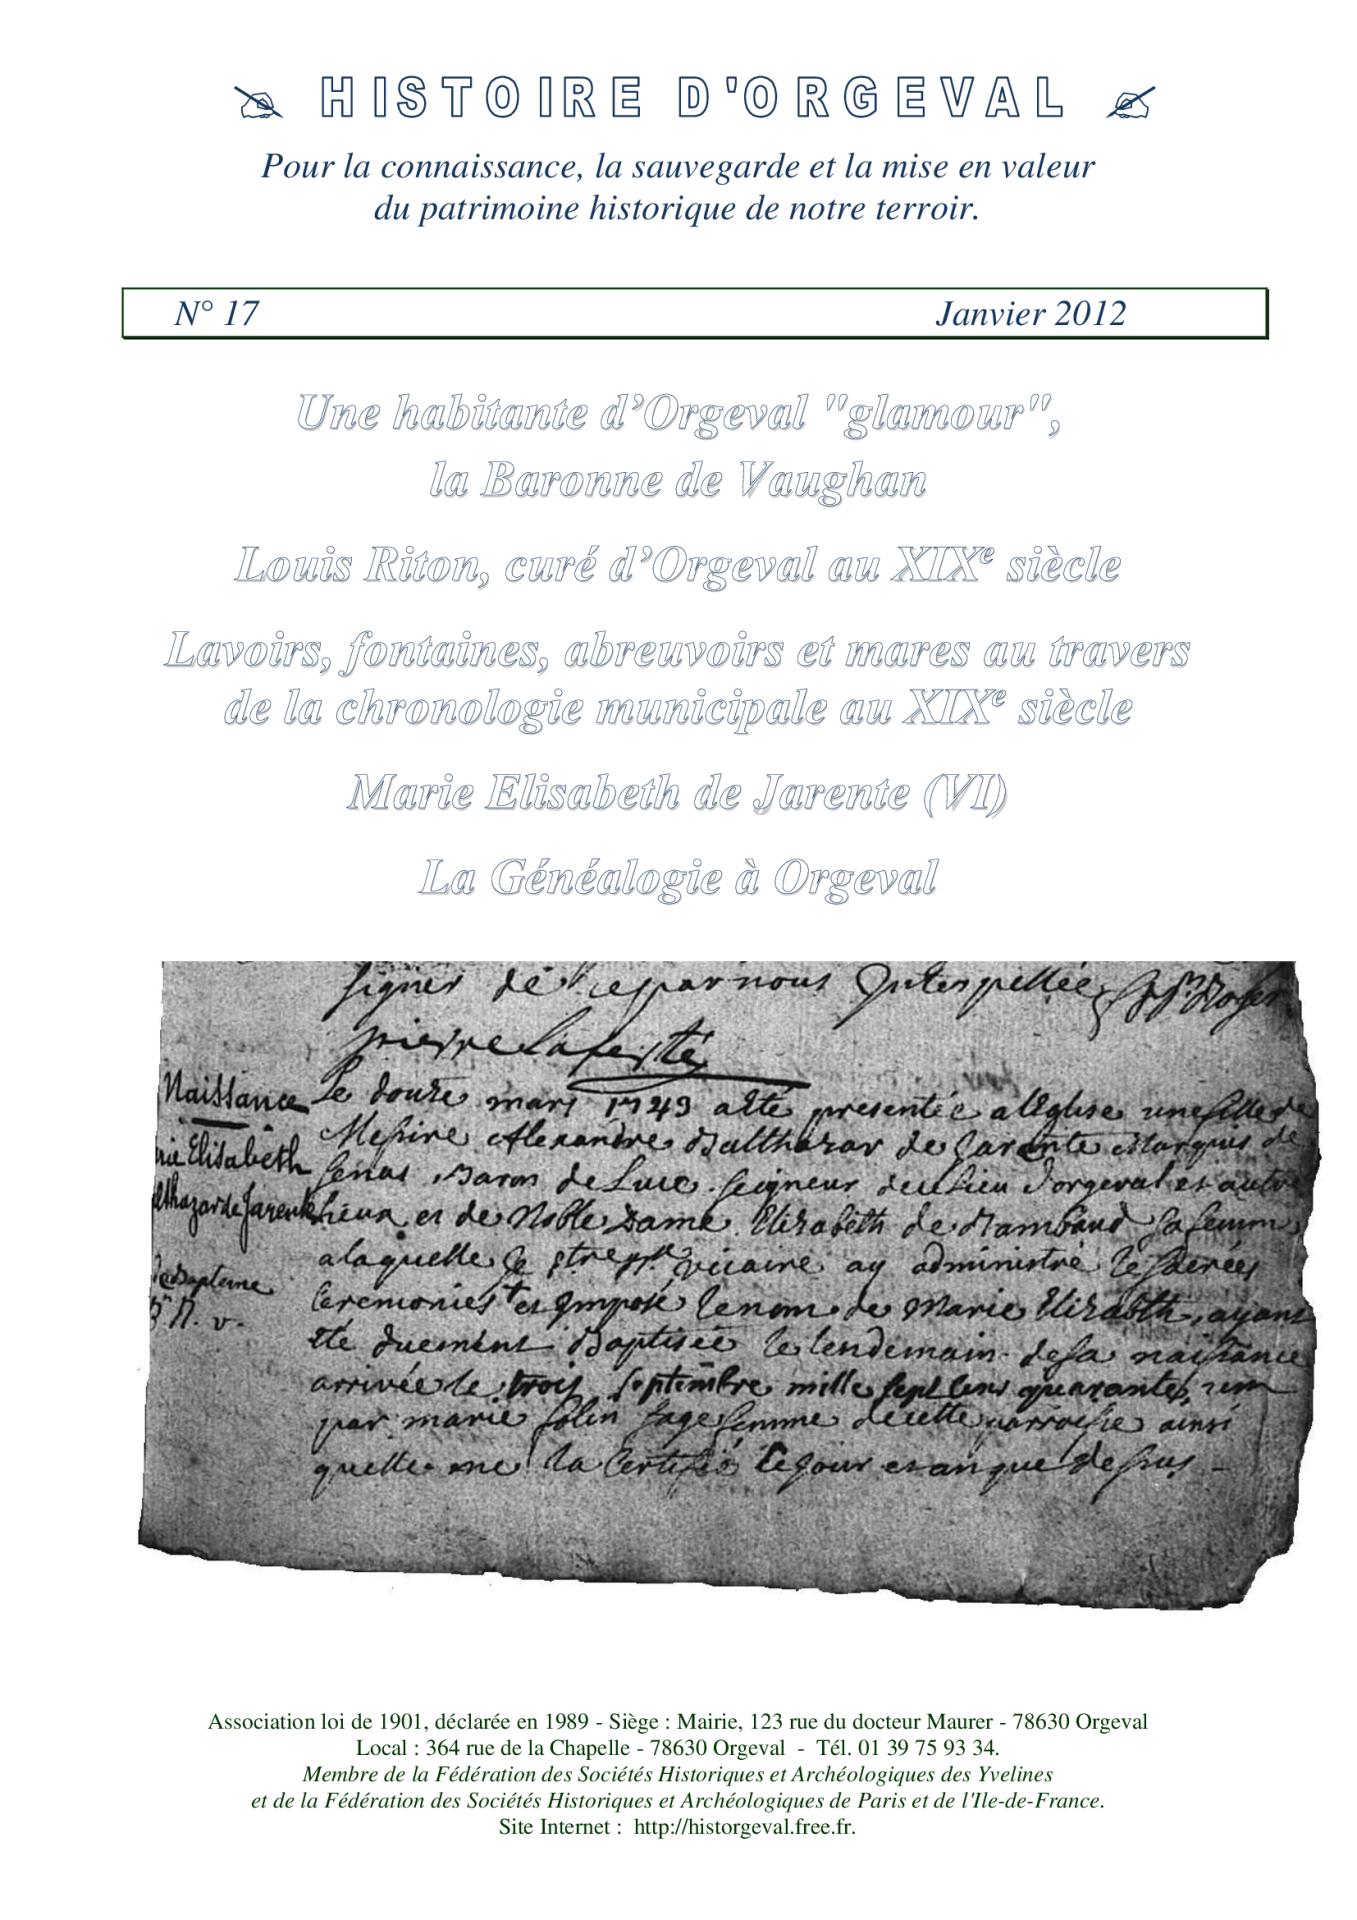 HISTOIRE D'ORGEVAL
Pour la connaissance, la sauvegarde et la mise en valeur
du patrimoine historique de notre terroir.
N° 17 Janvier 2012
Une habitante d’Orgeval "glamour",
la Baronne de Vaughan
Louis Riton, curé d’Orgeval au XIXe siècle
Lavoirs, fontaines, abreuvoirs et mares au travers
de la chronologie municipale au XIXe siècle
Marie Elisabeth de Jarente (VI)
La Généalogie à Orgeval
signer de par nous Interpellée
pierre Laferté
Naissance Le douze mars 1743 a été presentée a l'Eglise une fille de
Elisabeth Messire Alexandre Balthazar de Jarente Marquis de
Senas, Baron de Luc seigneur de ce lieu d'orgeval et autre
de Jarente Lieux et de Noble Dame Elizabeth de sa femme
a laquelle le vicaire ay administré les
Bapteme Ceremonies et Imposé le nom de Marie Elizabth, ayant
été duement Baptisée le lendemain de sa naissance
arrivée le trois septembre mille sept cens quarante, un
par marie sage femme de cette parroisse ainsi
quelle me la Certifié le jour et an que dessus
Association loi de 1901, déclarée en 1989 - Siège : Mairie, 123 rue du docteur Maurer - 78630 Orgeval
Local : 364 rue de la Chapelle - 78630 Orgeval - Tél. 01 39 75 93 34.
Membre de la Fédération des Sociétés Historiques et Archéologiques des Yvelines
et de la Fédération des Sociétés Historiques et Archéologiques de Paris et de l'Ile-de-France.
Site Internet : http://historgeval.free.fr.